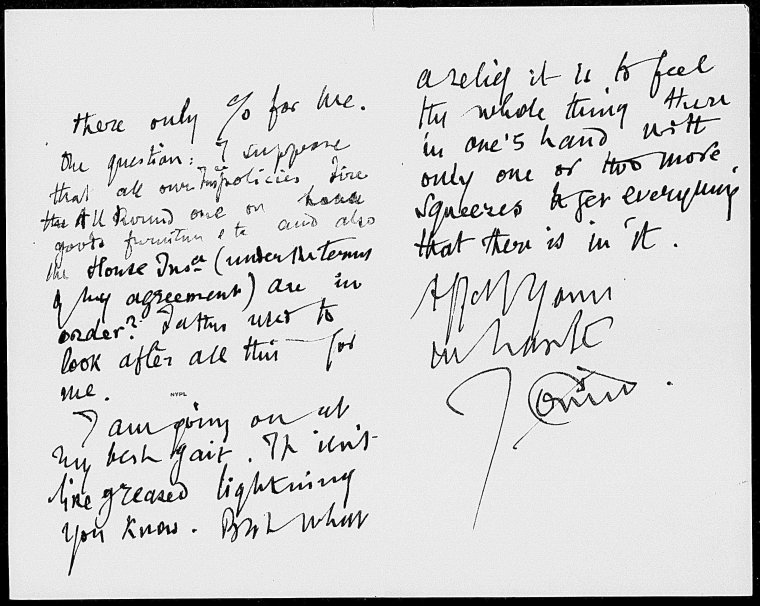 there only % for me.
One question: I suppose
that all our Ins policies Fire
the All Round one on house
goods furniture etc and also
the House Insce (under the terms
of my agreement) are in
order? used to
look after all this for
me.
NYPL
I am going on at
my best gait. Th isn't
like greased lightning
you know. But what
a relief it is to feel
the whole thing there
in one's hand with
only one or two more
squeezes to get everything
that there is in it.
Affctly Yours
in haste
J. Conrad.